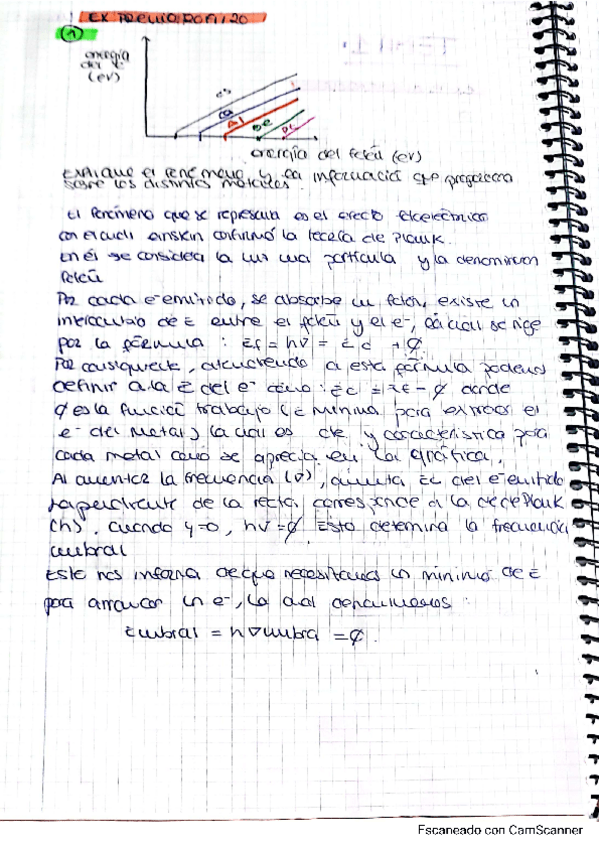 EX
1
energía
del e-
(eV)
Cs
Al
energía del fotón (eV)
explique el fenómeno y la información que proporciona
sobre los distintos metales.
El fenómeno que se representa es el efecto fotoeléctrico
con el cual einstein confirmó la teoría de Planck.
En él se considera la luz una partícula y la denominaron
fotón
Por cada e- emitido, se absorbe un fotón, existe un
intercambio de E entre el fotón y el e-, la cual se rige
por la fórmula : Ef = hν = Ec + φ.
Por consiguiente, atendiendo a esta fórmula podemos
definir a la E del e- como : Ec = - φ donde
φ es la función trabajo (E mínima para extraer el
e- del metal) la cual es cte y característica para
cada metal como se aprecia en la gráfica.
Al aumentar la frecuencia (ν), aumenta Ec del e- emitido
La pendiente de la recta corresponde a la cte de Planck
(h). Cuando y=0, hν=φ. Esto determina la frecuencia
umbral
Este nos informa de que necesitamos un mínimo de E
para arrancar un e-, la cual denominamos :
Eumbral = hνumbral = φ.
Escaneado con CamScanner